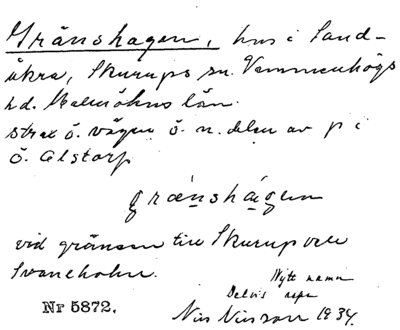 Gränshagen, hus i Sand-
åkra, Skurups sn. Vemmenhögs
hd. Malmöhus län.
strax ö. vägen ö. n. delen av p i
Ö. Alstorp
grä̱nshá̱gen
vid gränsen till Skurup och
Svaneholm.
Nytt namn
Delvis uppr
Nr 5872.
Nils Nilsson 1934.